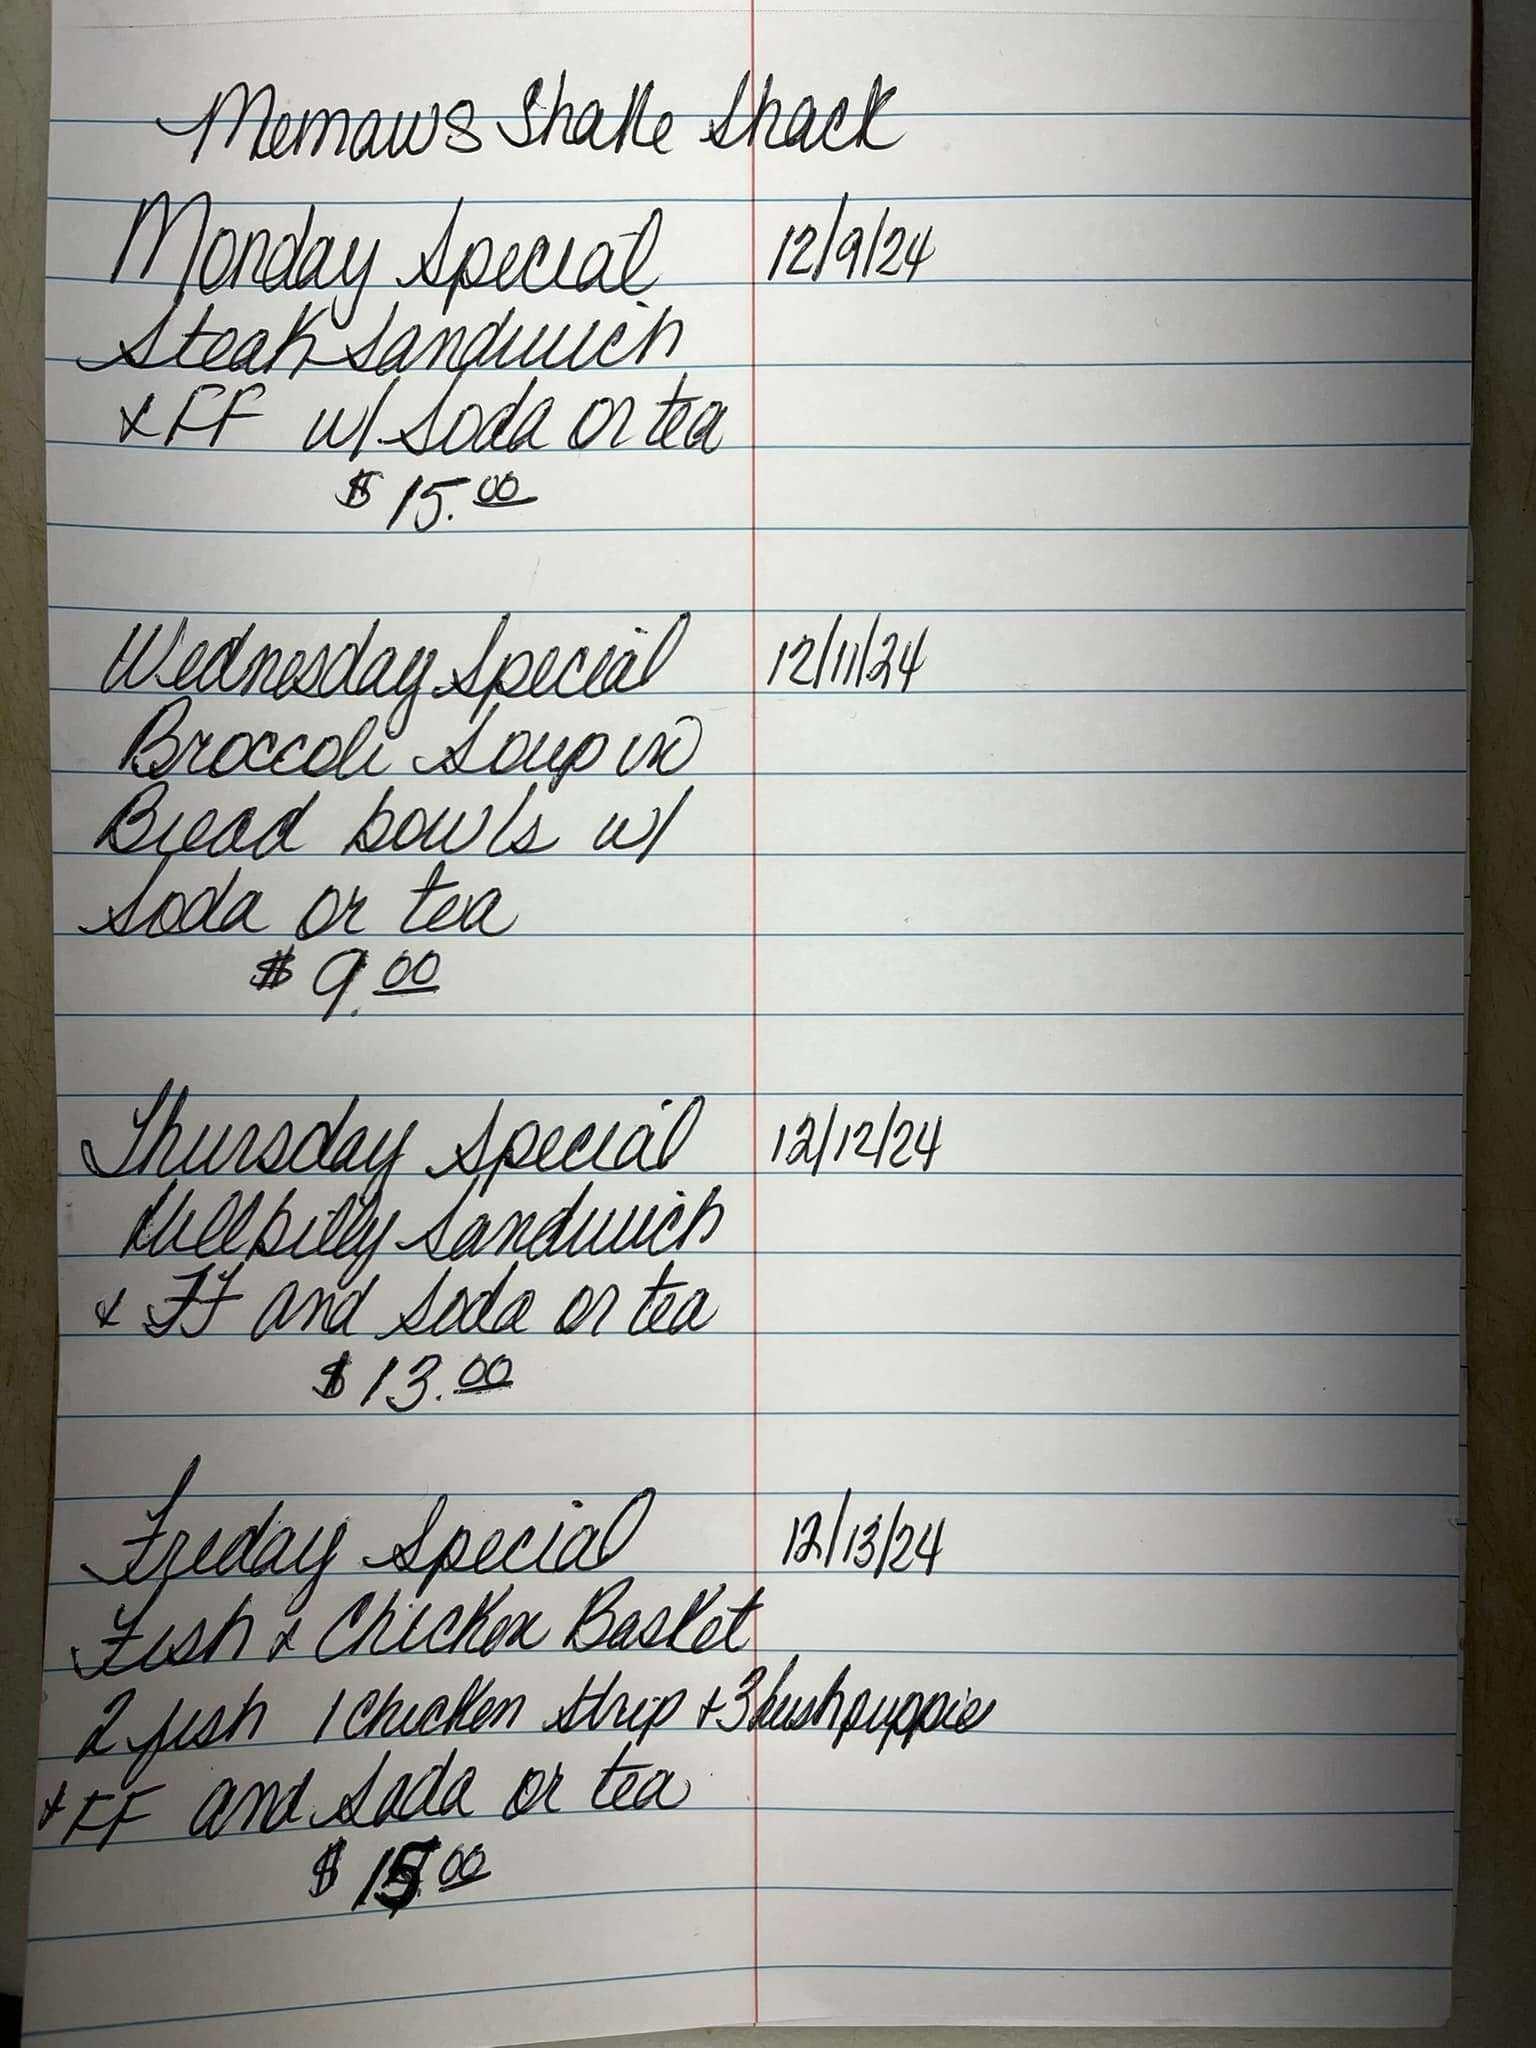 Memaws Shake Shack
Monday Special 12/9/24
Steak Sandwich
& FF w/ Soda or tea
$15.00
Wednesday Special 12/11/24
Broccoli Soup in
Bread bowls w/
Soda or tea
$9.00
Thursday Special 12/12/24
Hillbilly Sandwich
& FF and Soda or tea
$13.00
Friday Special 12/13/24
Fish & Chicken Basket
2 fish 1 chicken strip + 3 hushpuppies
+ FF and Soda or tea
$15.00